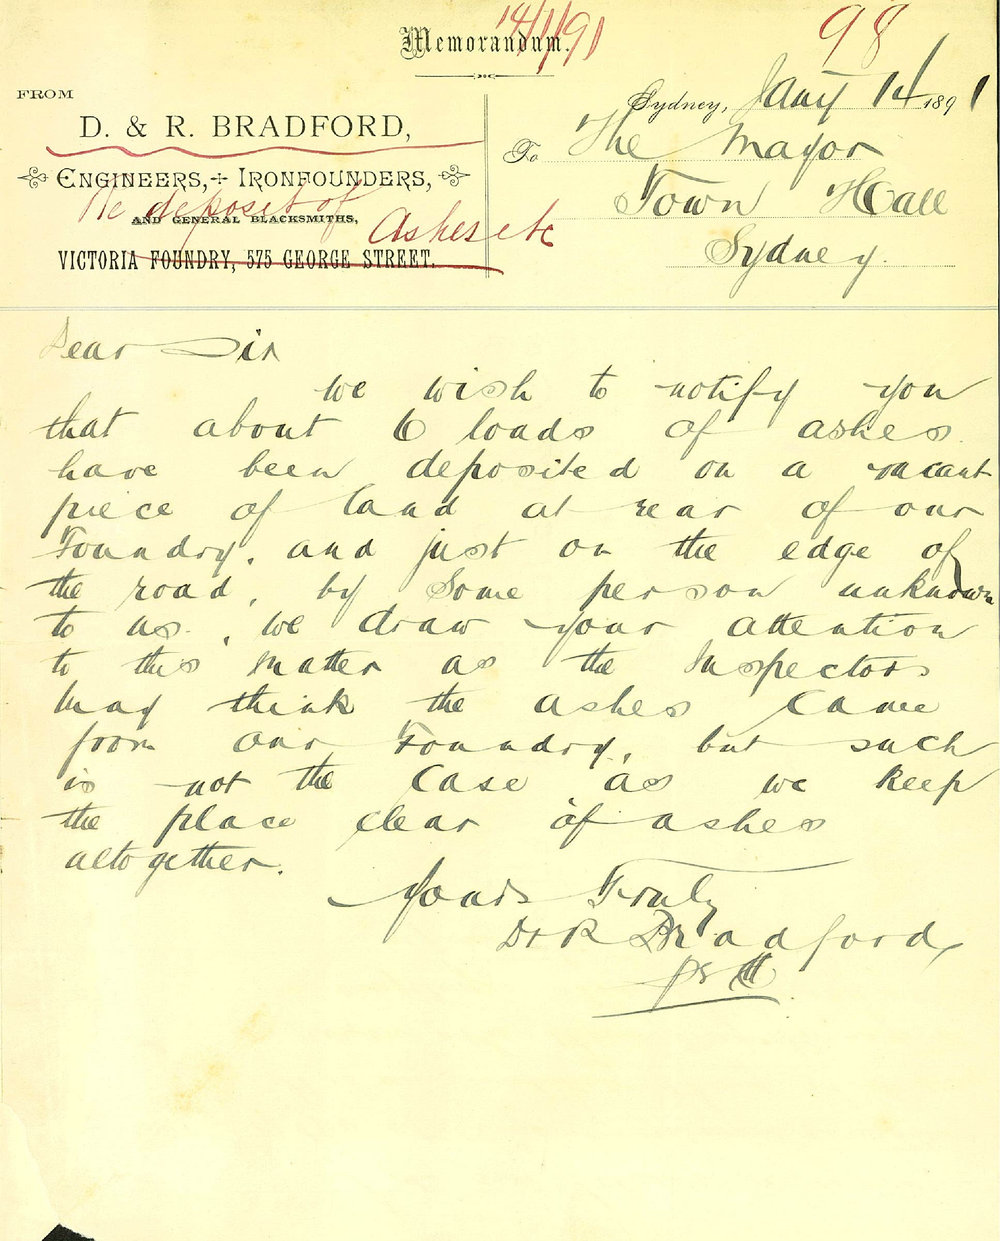 14/1/91
98
Memorandum.
FROM
D. & R. BRADFORD,
ENGINEERS, + IRONFOUNDERS,
AND GENERAL BLACKSMITHS,
VICTORIA FOUNDRY, 575 GEORGE STREET.
Re deposit of
Ashes etc
Sydney, Jany 14 1891
To The Mayor
Town Hall
Sydney.
Dear Sir
we wish to notify you
that about 6 loads of ashes
have been deposited on a vacant
piece of land at rear of our
Foundry, and just on the edge of
the road, by some person unknown
to us, we draw your attention
to this matter as the Inspectors
may think the ashes came
from our Foundry, but such
is not the case as we keep
the place clear of ashes
altogether.
Yours Truly
D & R Bradford